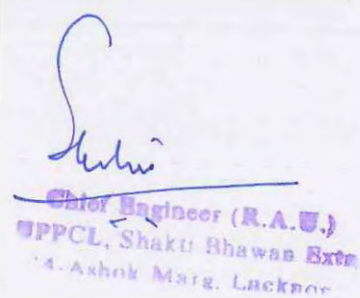 Chief Engineer (R.A.U.)
UPPCL, Shakti Bhawan Extn
14, Ashok Marg, Lucknow